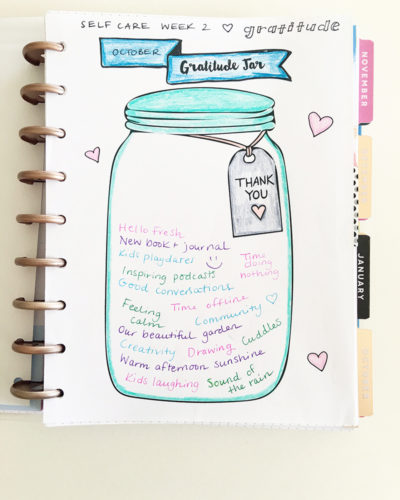 SELF CARE WEEK 2 ♡ gratitude
OCTOBER
Gratitude Jar
THANK
YOU
Hello fresh
New book + journal
Kids playdates
Time
doing
nothing
Inspiring podcasts
Good conversations
Feeling
calm
Time offline
Community ♡
Our beautiful garden
Cuddles
Creativity
Drawing
Warm afternoon sunshine
Kids laughing
Sound of
the rain
NOVEMBER
JANUARY